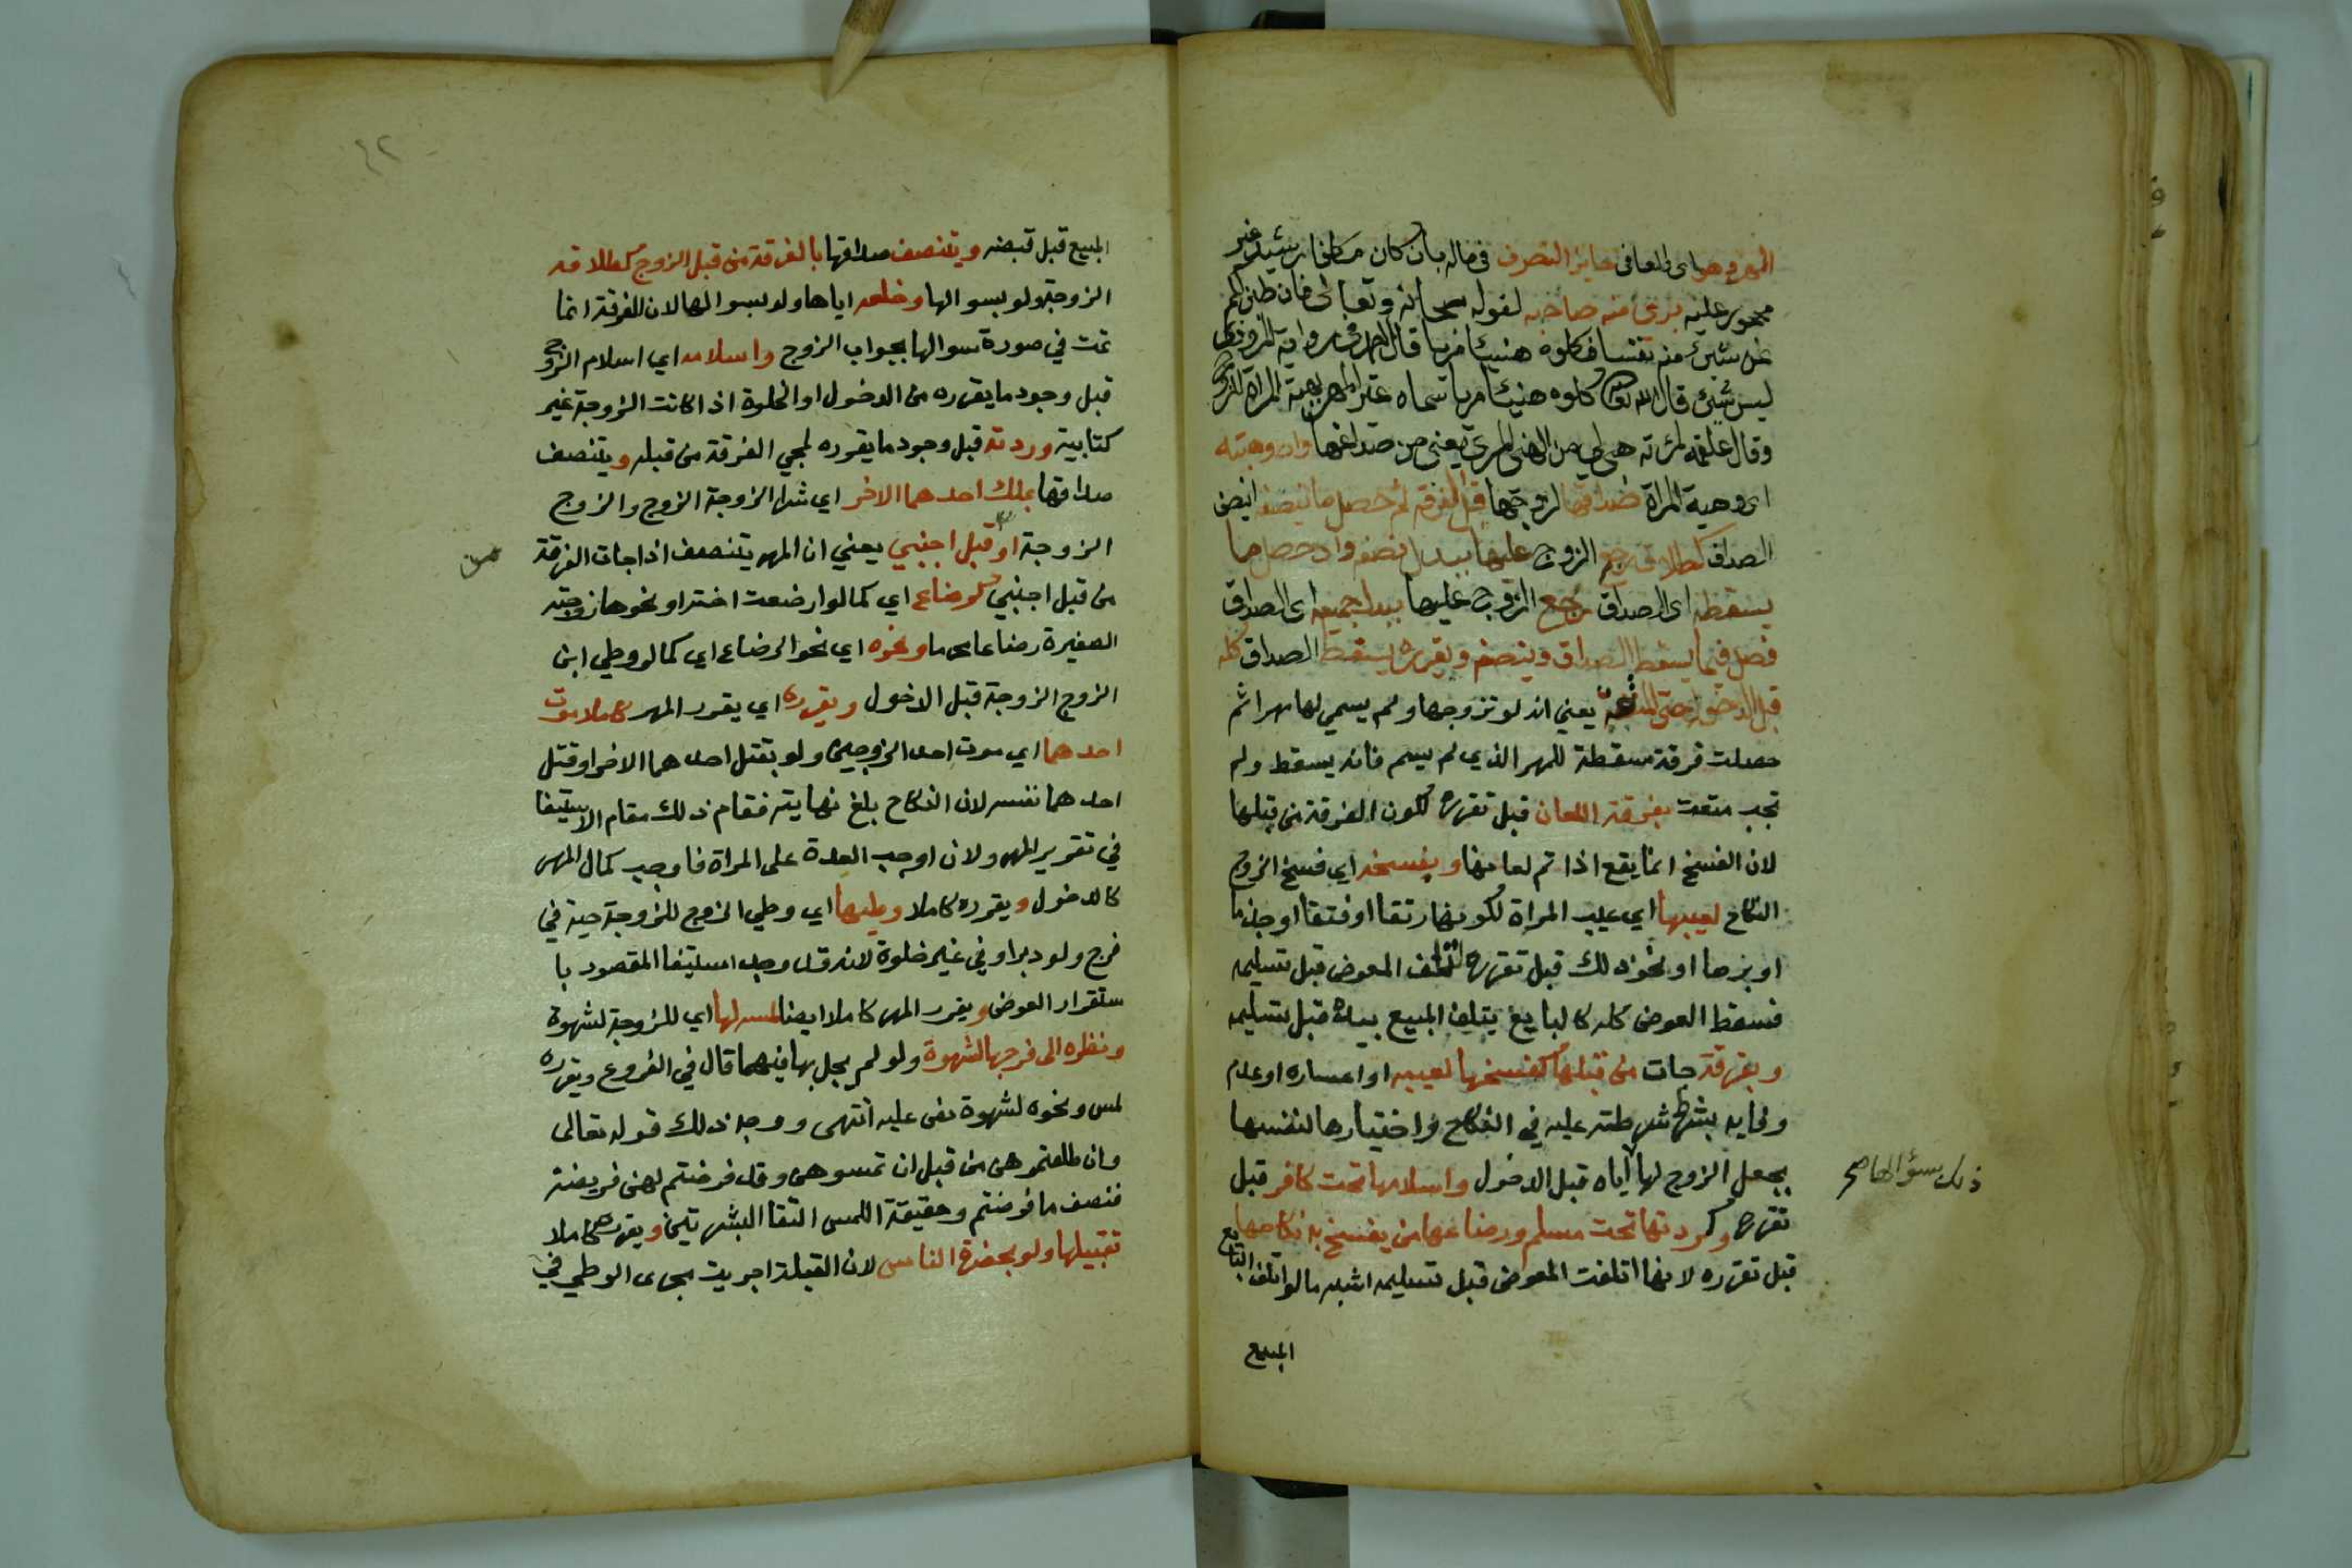 المهر وهو اى طلعا فى جايز التصرف فى ماله بان كان مكلفا رشيدا غير
محجور عليه برئ منه صاحبه لقوله سبحانه وتعالى فان طبن لكم
عن شئ منه نفسا فكلوه هنيئا مريا قال احمد في رواية المروذي
ليس شئ قال الله تعالى فكلوه هنيئا مريا سماه غير المهر بهبة المراة للزوج
وقال علقمة لامرته هبي لي من الهني المري يعني من صداقها وان وهبته
اى وهبة المراة صداقها لزوجها قبل الفرقة ثم حصل ما ينصفه اى نصف
الصداق كطلاقه رجع الزوج عليها ببدل نصفه وان حصل ما
يسقطه اى الصداق رجع الزوج عليها ببدل جميعه اى الصداق
فصل فيما يسقط الصداق وينصفه ويقرره يسقط الصداق كله
قبل الدخول حتى المتعة يعني انه لو تزوجها ولم يسمي لها مهرا ثم
حصلت فرقة مسقطة للمهر الذي لم يسم فانه يسقط ولم
تجب متعت بفرقة اللعان قبل تقرره لكون الفرقة من قبلها
لان الفسخ انما يقع اذا تم لعانها وبفسخه اي فسخ الزوج
النكاح لعيبها اي عيب المراة لكونها رتقا او فتقا او جذما
او برصا او نحو ذلك قبل تقرره لتلف المعوض قبل تسليمه
فسقط العوض كله كالبايع يتلف المبيع بيده قبل تسليمه
وبفرقة جات من قبلها كفسخها لعيبه او اعساره او عدم
وفايه بشرط شرطته عليه في النكاح واختيارها لنفسها
بجعل الزوج لها اياه قبل الدخول واسلامها تحت كافر قبل
ذلك بسؤالها صح
تقرره وكردتها تحت مسلم ورضاعها من ينفسخ به نكاحها
قبل تقرره لانها اتلفت المعوض قبل تسليمه اشبه مالو اتلف البايع
المبيع
المبيع قبل قبضه ويتنصف صداقها بالفرقة من قبل الزوج كطلاقه
الزوجة ولو بسوالها وخلعه اياها ولو بسوالها لان الفرقة انما
تمت في صورة سوالها بجواب الزوج واسلامه اي اسلام الزوج
قبل وجود ما يقرره من الدخول او الخلوة اذا كانت الزوجة غير
كتابية وردته قبل وجود ما يقرره لمجي الفرقة من قبله ويتنصف
صداقها بملك احدهما الاخر اي شرا الزوجة الزوج والزوج
الزوجة او قبل اجنبي يعني ان المهر يتنصف اذا جات الفرقة
من
من قبل اجنبي كرضاع اي كما لو ارضعت اخته او نحوها زوجته
الصغيرة رضاعا محرما ونحوه اي نحو الرضاع اي كما لو وطي ابن
الزوج الزوجة قبل الدخول ويقرره اي يقرر المهر كاملا موت
احدهما اي موت احد الزوجين ولو بقتل احدهما الاخر او قتل
احدهما نفسه لان النكاح بلغ نهايته فقام ذلك مقام الاستيفا
في تقرير المهر ولان اوجب العدة على المراة فاوجب كمال المهر
كالدخول ويقرره كاملا وطيها اي وطي الزوج للزوجة حية في
فرج ولو دبرا وفي غير خلوة لانه قد وجد استيفا المقصود با
ستقرار العوض ويقرر المهر كاملا ايضا لمسه لها اي للزوجة لشهوة
ونظره الى فرجها لشهوة ولو لم يخل بها فيهما قال في الفروع ويقرره
لمس ونحوه لشهوة نص عليه انتهى ووجه ذلك قوله تعالى
وان طلقتموهن من قبل ان تمسوهن وقد فرضتم لهن فريضة
فنصف ما فرضتم وحقيقة اللمس التقا البشرتين ويقرره كاملا
تقبيلها ولو بحضرة الناس لان القبلة اجريت مجرى الوطي في